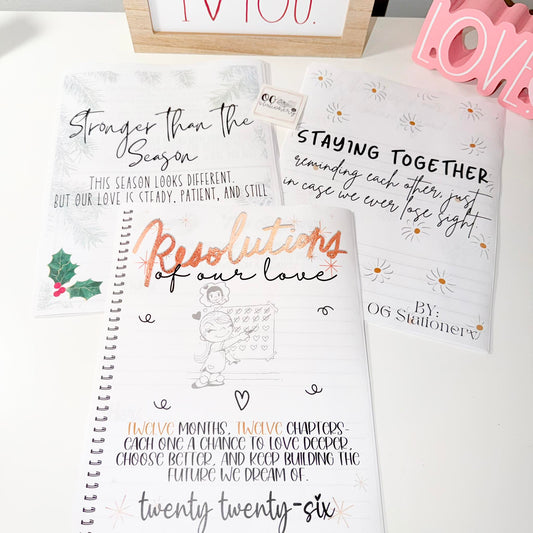 I YOU.
LOVE
OG
Stronger than the
Season
THIS SEASON LOOKS DIFFERENT.
BUT OUR LOVE IS STEADY, PATIENT, AND STILL
STAYING TOGETHER
reminding each other, just
in case we ever lose sight
BY:
OG Stationery
Resolutions
of our love
TWELVE MONTHS, TWELVE CHAPTERS-
EACH ONE A CHANCE TO LOVE DEEPER,
CHOOSE BETTER, AND KEEP BUILDING THE
FUTURE WE DREAM OF.
twenty twenty-six